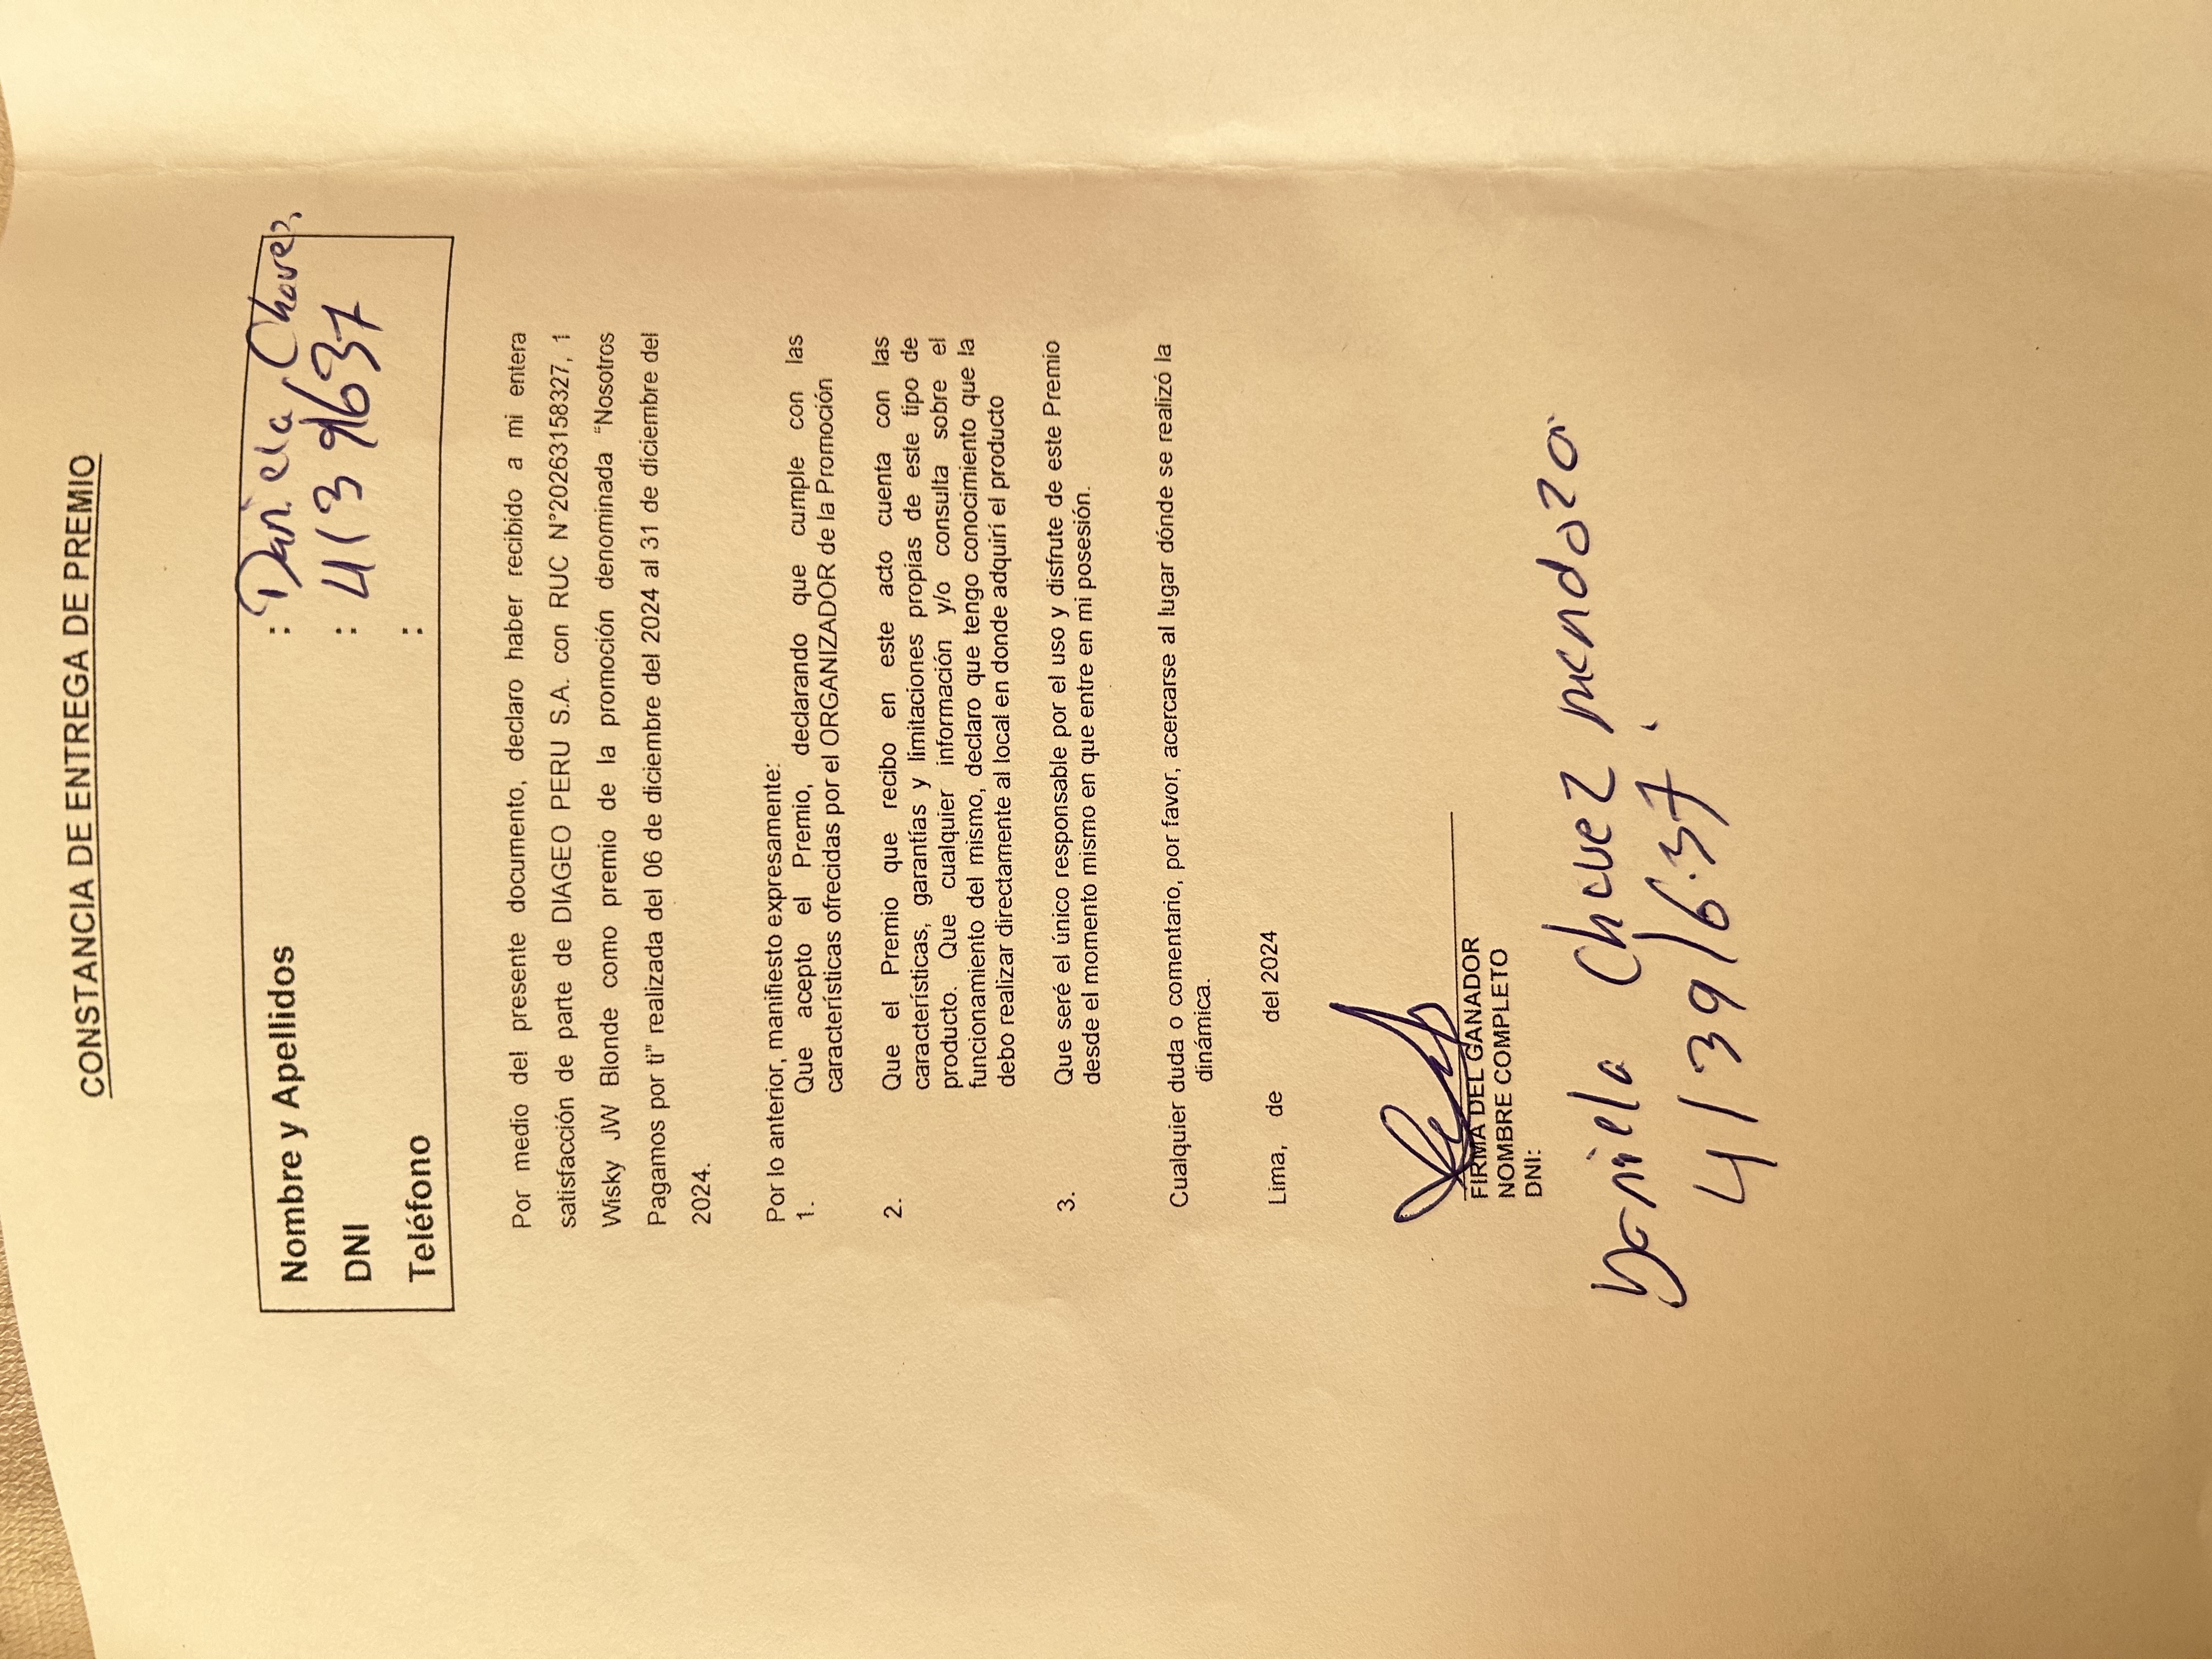 CONSTANCIA DE ENTREGA DE PREMIO
Nombre y Apellidos : Daniela Chavez
DNI : 41391637
Teléfono :
Por medio del presente documento, declaro haber recibido a mi entera
satisfacción de parte de DIAGEO PERU S.A. con RUC N°20263158327, 1
Wisky JW Blonde como premio de la promoción denominada “Nosotros
Pagamos por ti” realizada del 06 de diciembre del 2024 al 31 de diciembre del
2024.
Por lo anterior, manifiesto expresamente:
1. Que acepto el Premio, declarando que cumple con las
características ofrecidas por el ORGANIZADOR de la Promoción
2. Que el Premio que recibo en este acto cuenta con las
características, garantías y limitaciones propias de este tipo de
producto. Que cualquier información y/o consulta sobre el
funcionamiento del mismo, declaro que tengo conocimiento que la
debo realizar directamente al local en donde adquirí el producto
3. Que seré el único responsable por el uso y disfrute de este Premio
desde el momento mismo en que entre en mi posesión.
Cualquier duda o comentario, por favor, acercarse al lugar dónde se realizó la
dinámica.
Lima, de del 2024
FIRMA DEL GANADOR
NOMBRE COMPLETO
DNI:
Daniela Chavez Mendoza
41391637